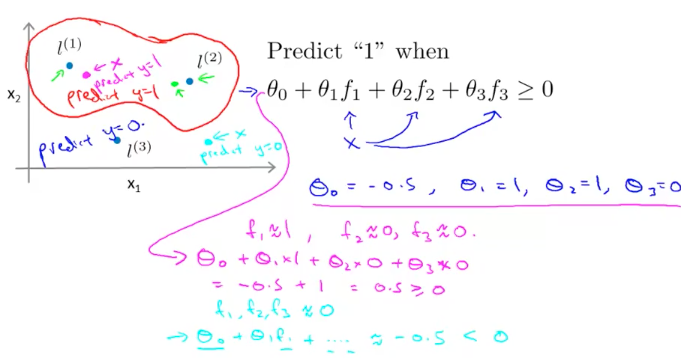 l⁽¹⁾
l⁽²⁾
← x
predict y=1
predict y=1
x₂
predict y=0.
l⁽³⁾
← x
predict y=0
x₁
Predict “1” when
θ₀ + θ₁f₁ + θ₂f₂ + θ₃f₃ ≥ 0
x
θ₀ = -0.5 , θ₁=1, θ₂=1, θ₃=0
f₁≈1 , f₂≈0, f₃≈0.
→ θ₀ + θ₁×1 + θ₂×0 + θ₃×0
= -0.5 + 1 = 0.5 ≥ 0
f₁, f₂, f₃ ≈ 0
→ θ₀ + θ₁f₁ + .... ≈ -0.5 < 0